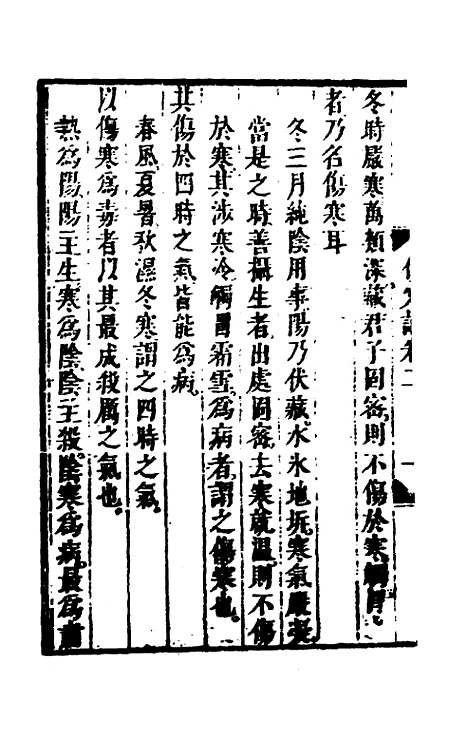 冬時嚴寒萬類深藏君子固密則不傷於寒觸冒
者乃名傷寒耳
冬三月純陰用事陽乃伏藏水氷地坼寒氣嚴凝
當是之時善攝生者出處固密去寒就溫則不傷
於寒其涉寒冷觸冒霜雪為病者謂之傷寒也
其傷於四時之氣皆能為病
春風夏暑秋濕冬寒謂之四時之氣
以傷寒為毒者以其最成殺厲之氣也
熱為陽陽主生寒為陰陰主殺陰寒為病最為
卷二